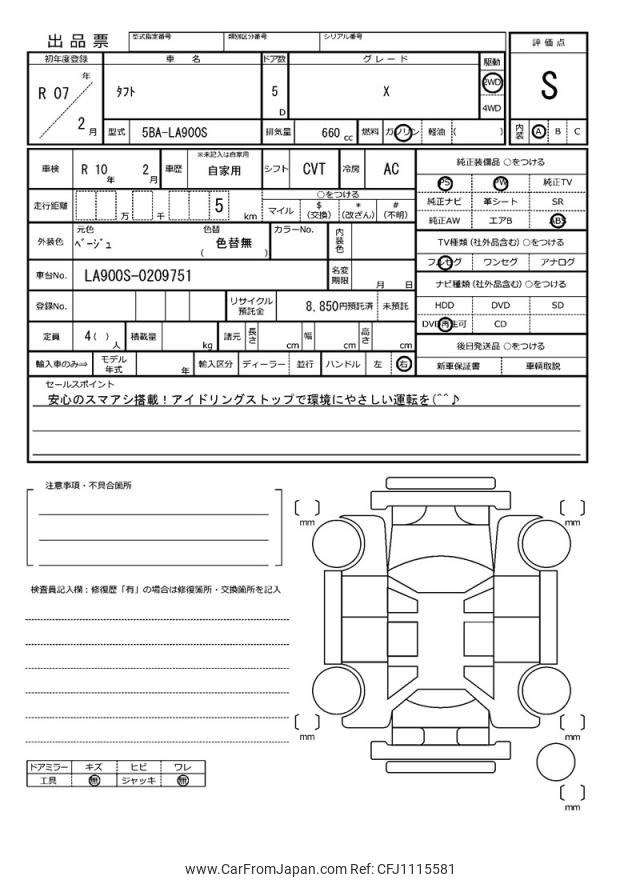 出品票
型式指定番号 類別区分番号 シリアル番号
評価点
初年度登録 車名 ドア数 グレード 駆動
R 07 年 2 月
ﾀﾌﾄ
5 D
X
2WD
4WD
S
型式 5BA-LA900S 排気量 660 cc 燃料 ガソリン 軽油 ( )
内装 A B C
車検 R 10 年 2 月 車歴 ※未記入は自家用 自家用 シフト CVT 冷房 AC
純正装備品 ○をつける
PS PW 純正TV
走行距離 万 千 5 km
○をつける
マイル $ (交換) * (改ざん) # (不明)
純正ナビ 革シート SR
純正AW エアB ABS
外装色 元色 ﾍﾞｰｼﾞｭ 色替 ( 色替無 ) カラーNo. 内装色
TV種類 (社外品含む) ○をつける
フルセグ ワンセグ アナログ
車台No. LA900S-0209751 名変期限 月 日
ナビ種類 (社外品含む) ○をつける
登録No. リサイクル預託金 8,850円預託済 未預託
HDD DVD SD
DVD再生可 CD
定員 4( ) 人 積載量 kg 諸元 長さ cm 幅 cm 高さ cm
後日発送品 ○をつける
輸入車のみ⇒ モデル年式 年 輸入区分 ディーラー 並行 ハンドル 左 右
新車保証書 車輌取説
セールスポイント
安心のスマアシ搭載！アイドリングストップで環境にやさしい運転を(^^♪
注意事項・不具合箇所
mm
mm
検査員記入欄：修復歴「有」の場合は修復箇所・交換箇所を記入
mm
mm
ドアミラー キズ ヒビ ワレ
工具 無 ジャッキ 無
mm
www.CarFromJapan.com Ref: CFJ1115581